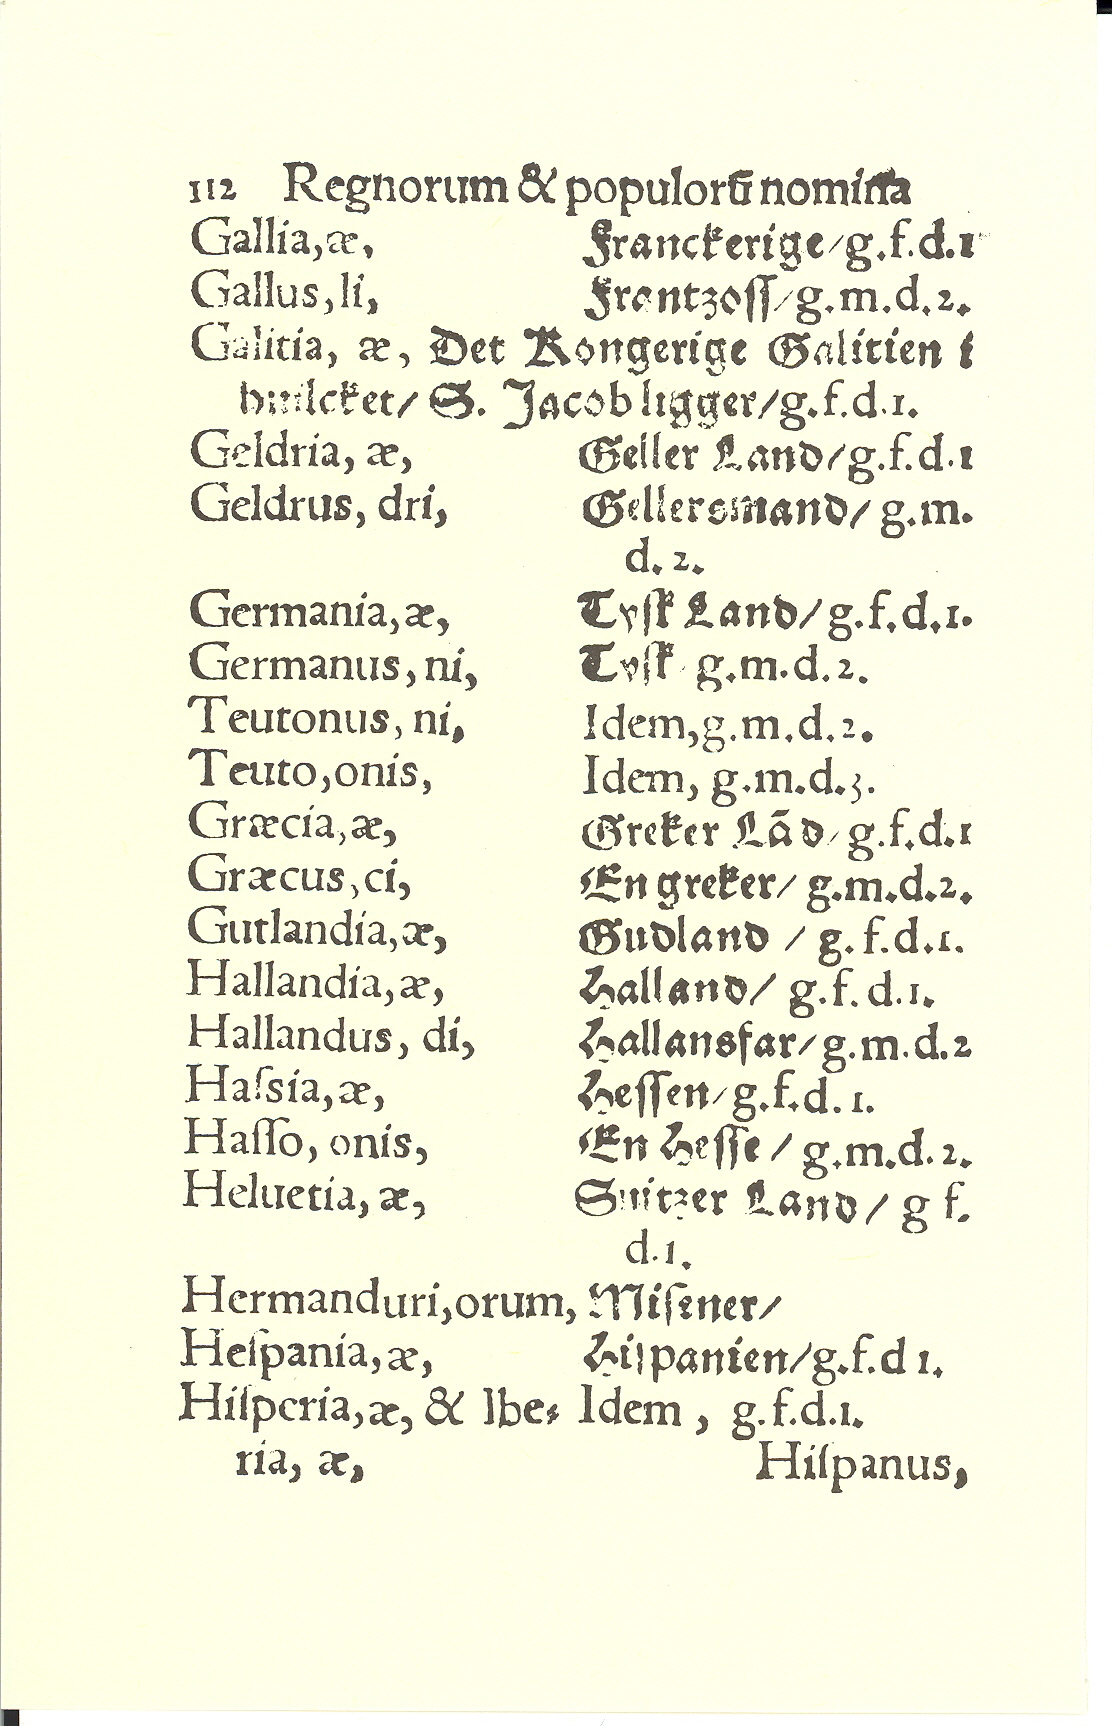 112 Regnorum & populorũ nomina
Gallia, æ, Franckerige/g.f.d.1
Gallus, li, Frantzoſſ/g.m.d.2.
Galitia, æ, Det Kongerige Galitien i
huilcket/ S. Jacob ligger/g.f.d.1.
Geldria, æ, Geller Land/g.f.d.1
Geldrus, dri, Gellersmand/ g.m.
d.2.
Germania, æ, Tyſk Land/g.f.d.1.
Germanus, ni, Tyſk g.m.d.2.
Teutonus, ni, Idem,g.m.d.2.
Teuto, onis, Idem, g.m.d.3.
Græcia, æ, Greker Lãd/g.f.d.1
Græcus, ci, En greker/ g.m.d.2.
Gutlandia, æ, Gudland / g.f.d.1.
Hallandia, æ, Halland/ g.f.d.1.
Hallandus, di, Hallansfar/g.m.d.2
Haſsia, æ, Heſſen/g.f.d.1.
Haſſo, onis, En Heſſe / g.m.d.2.
Heluetia, æ, Suitzer Land / g f.
d.1.
Hermanduri,orum, Miſener/
Heſpania, æ, Hiſpanien/g.f.d 1.
Hiſperia, æ, & Ibe⸗ Idem , g.f.d.1.
ria, æ, Hiſpanus,